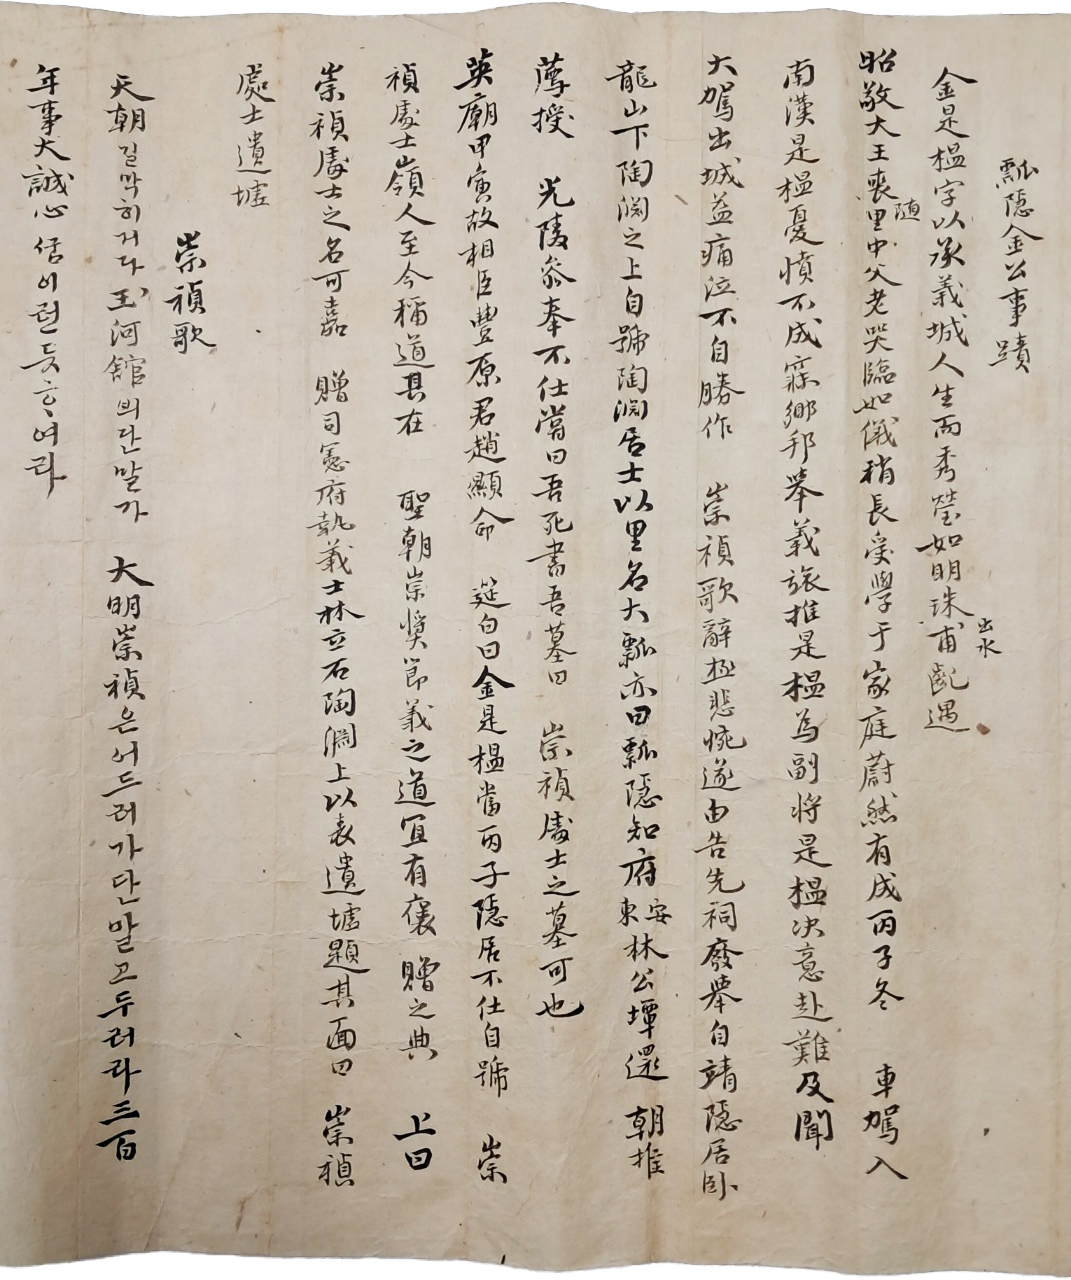 瓢隱金公事蹟
金是榲字以承義城人生而秀瑩如明珠出水甫齔遇
昭敬大王喪隨里中父老哭臨如儀稍長受學于家庭蔚然有成丙子冬 車駕入
南漢是榲憂憤不成寐鄉邦擧義旅推是榲爲副將是榲决意赴難及聞
大駕出城益痛泣不自勝作 崇禎歌辭極悲惋遂由告先祠廢擧自靖隱居卧
龍山下陶淵之上自號陶淵居士以里名大瓢亦曰瓢隱知府安東林公墰還 朝推
薦授 光陵叅奉不仕嘗曰吾死書吾墓曰 崇禎處士之墓可也
英廟甲寅故相臣豐原君趙顯命 筵白曰金是榲當丙子隱居不仕自號 崇
禎處士嶺人至今稱道其在 聖朝崇奬節義之道宜有褒 贈之典 上曰
崇禎處士之名可嘉 贈司憲府執義士林立石陶淵上以表遺墟題其面曰 崇禎
處士遺墟
崇禎歌
天朝길막히거다玉河舘븨단말가 大明崇禎은어드러가단말고두러라三百
年事大誠心 이런듯여라